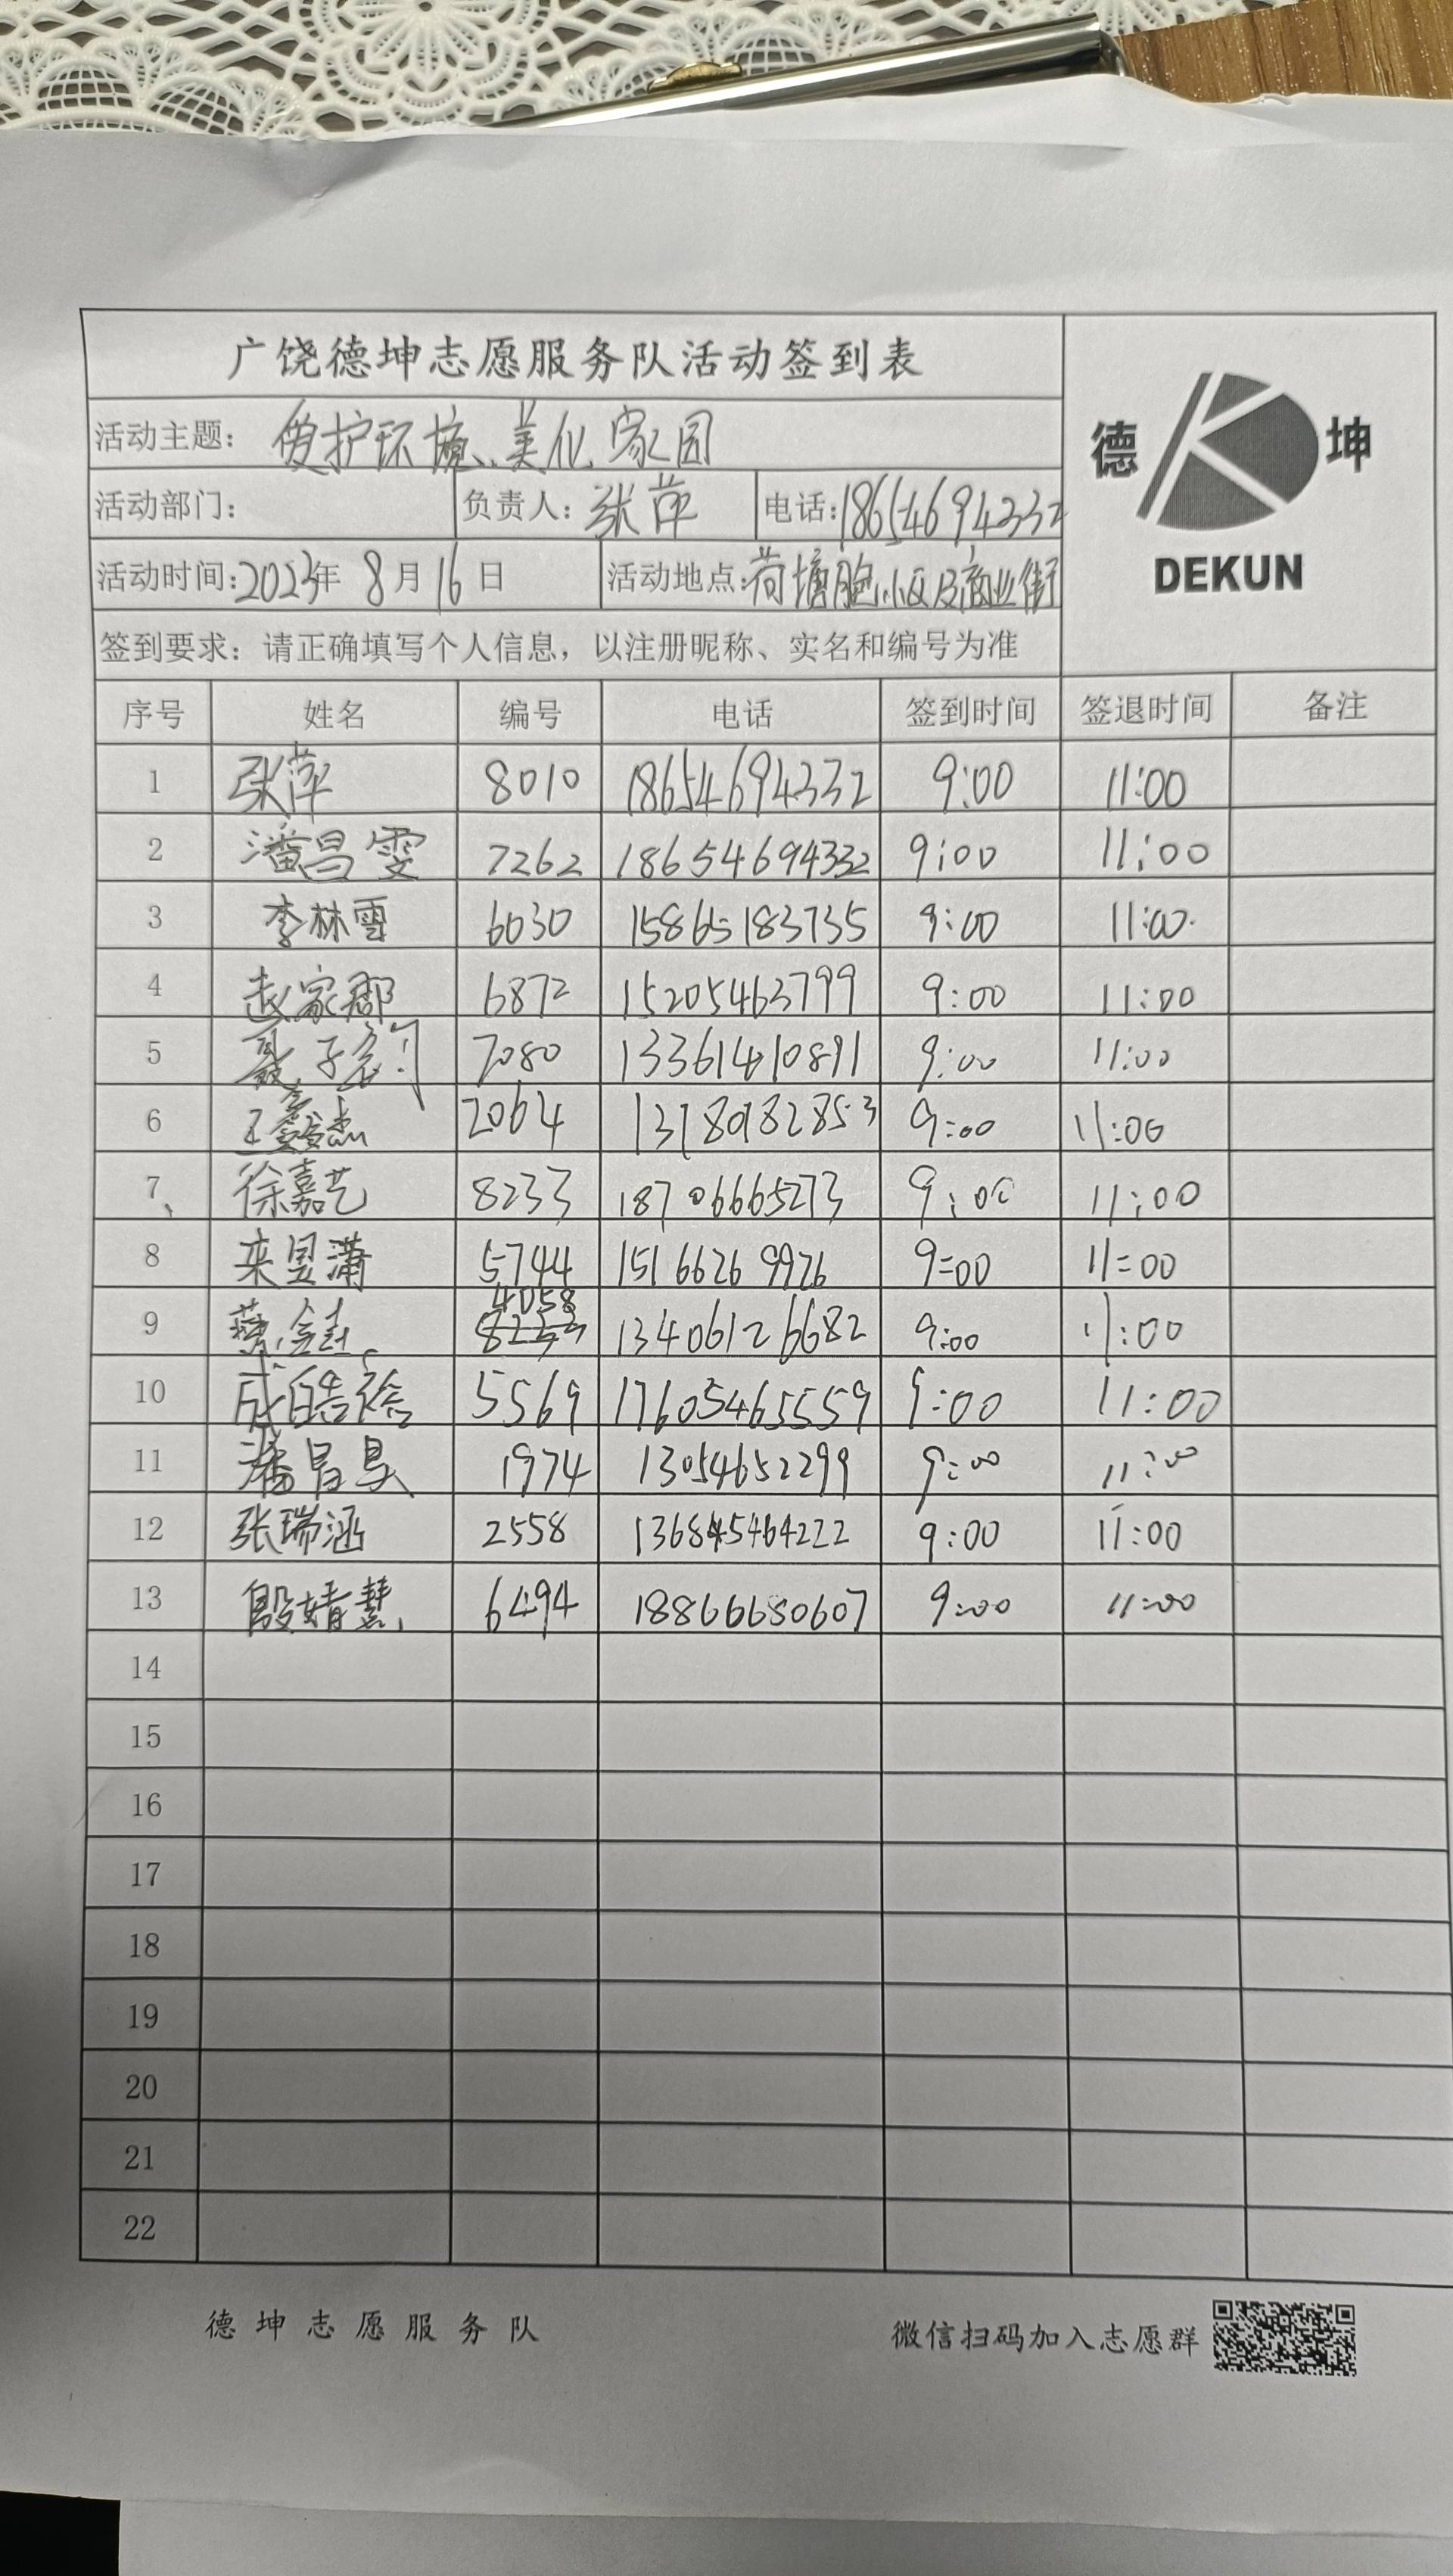 广饶德坤志愿服务队活动签到表
活动主题: 爱护环境、美化家园
德 坤
DEKUN
活动部门: 负责人: 张萍 电话: 18654694332
活动时间: 2023年 8月16日 活动地点: 荷塘 小区及商业街
签到要求: 请正确填写个人信息, 以注册昵称、实名和编号为准
序号 姓名 编号 电话 签到时间 签退时间 备注
1 张萍 8010 18654694332 9:00 11:00
2 潘昌雯 7262 18654694332 9:00 11:00
3 李林雪 6030 15865183735 9:00 11:00
4 赵家郡 6872 15205463799 9:00 11:00
5 聂子 7080 13361410891 9:00 11:00
6 王鑫 2064 9:00 11:00
7 徐嘉艺 8233 18706665273 9:00 11:00
8 来昱潇 5744 15166269926 9:00 11:00
9 4058 13406126682 9:00 11:00
10 成皓裕 5569 17605465559 9:00 11:00
11 潘昌昊 1974 13054652299 9:00 11:00
12 张瑞涵 2558 9:00 11:00
13 殷婧慧 6494 18866650607 9:00 11:00
14
15
16
17
18
19
20
21
22
德坤志愿服务队 微信扫码加入志愿群